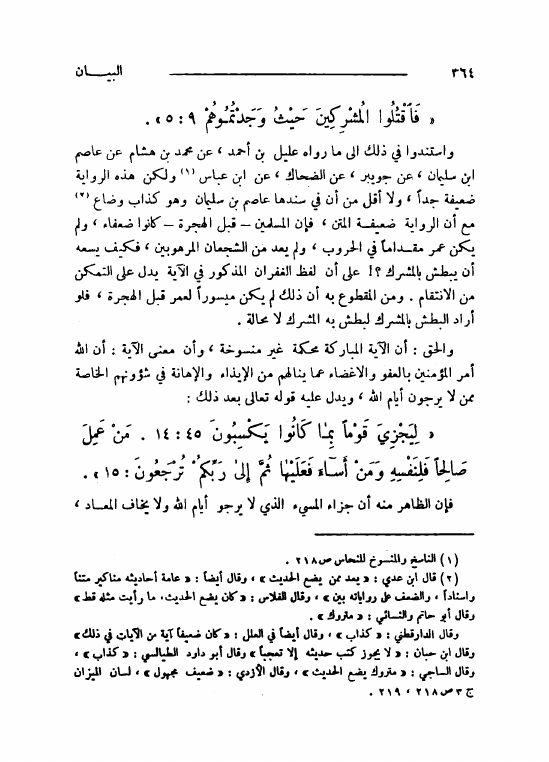 ٣٦٤ البيـــان
« فَٱقْتُلُوا الْمُشْرِكِينَ حَيْثُ وَجَدْتُمُوهُمْ ٩ : ٥ » .
واستندوا في ذلك الى ما رواه عليل بن أحمد ، عن محمد بن هشام عن عاصم
ابن سليمان ، عن جويبر ، عن الضحاك ، عن ابن عباس (١) ولكن هذه الرواية
ضعيفة جداً ، ولا أقل من أن في سندها عاصم بن سليمان وهو كذاب وضاع (٢)
مع أن الرواية ضعيفـة المتن ، فإن المسلمين – قبل الهجرة – كانوا ضعفاء ، ولم
يكن عمر مقـداماً في الحروب ، ولم يعد من الشجعان المرهوبين ، فكيف يسعه
أن يبطش بالمشرك ؟! على أن لفظ الغفران المذكور في الآية يدل على التمكن
من الانتقام . ومن المقطوع به أن ذلك لم يكن ميسوراً لعمر قبل الهجرة ، فلو
أراد البطش بالمشرك لبطش به المشرك لا محالة .
والحق : أن الآية المباركة محكمة غير منسوخة ، وأن معنى الآية : أن الله
أمر المؤمنين بالعفو والاغضاء عما ينالهم من الإيذاء والإهانة في شؤونهم الخاصة
ممن لا يرجون أيام الله ، ويدل عليه قوله تعالى بعد ذلك :
« لِيَجْزِيَ قَوْماً بِمَا كَانُوا يَكْسِبُونَ ٤٥ : ١٤ . مَنْ عَمِلَ
صَالِحاً فَلِنَفْسِهِ وَمَنْ أَسَاءَ فَعَلَيْهَا ثُمَّ إِلَىٰ رَبِّكُمْ تُرْجَعُونَ : ١٥ » .
فإن الظاهر منه أن جزاء المسيء الذي لا يرجو أيام الله ولا يخاف المعـاد ،
(١) الناسخ والمنسوخ للنحاس ص ٢١٨ .
(٢) قال ابن عدي : « يعد ممن يضع الحديث » ، وقال أيضاً : « عامة أحاديثه مناكير متناً
واسناداً ، والضعف على رواياته بين » ، وقال الفلاس : « كان يضع الحديث، ما رأيت مثله قط »
وقال أبو حاتم والنسائي : « متروك » .
وقال الدارقطني : « كذاب » ، وقال أيضاً في العلل : « كان ضعيفاً آية من الآيات في ذلك »
وقال ابن حبان : « لا يجوز كتب حديثه إلا تعجباً » وقال أبو داود الطيالسي : « كذاب » ،
وقال الساجي : « متروك يضع الحديث » ، وقال الأزدي : « ضعيف مجهول » ، لسان الميزان
ج ٣ ص ٢١٨ ، ٢١٩ .